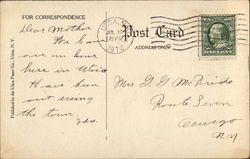 FOR CORRESPONDENCE
Post Card
ADDRESS ONLY
UTICA, N.Y.
JUL
1910
Dear Mother
We have
over an hour
here in Utica
Have been
out seeing
the town
Mrs. D. G. McBride
Route Seven
Oswego
N.Y.
Published by the Utica Paper Co., Utica, N. Y.